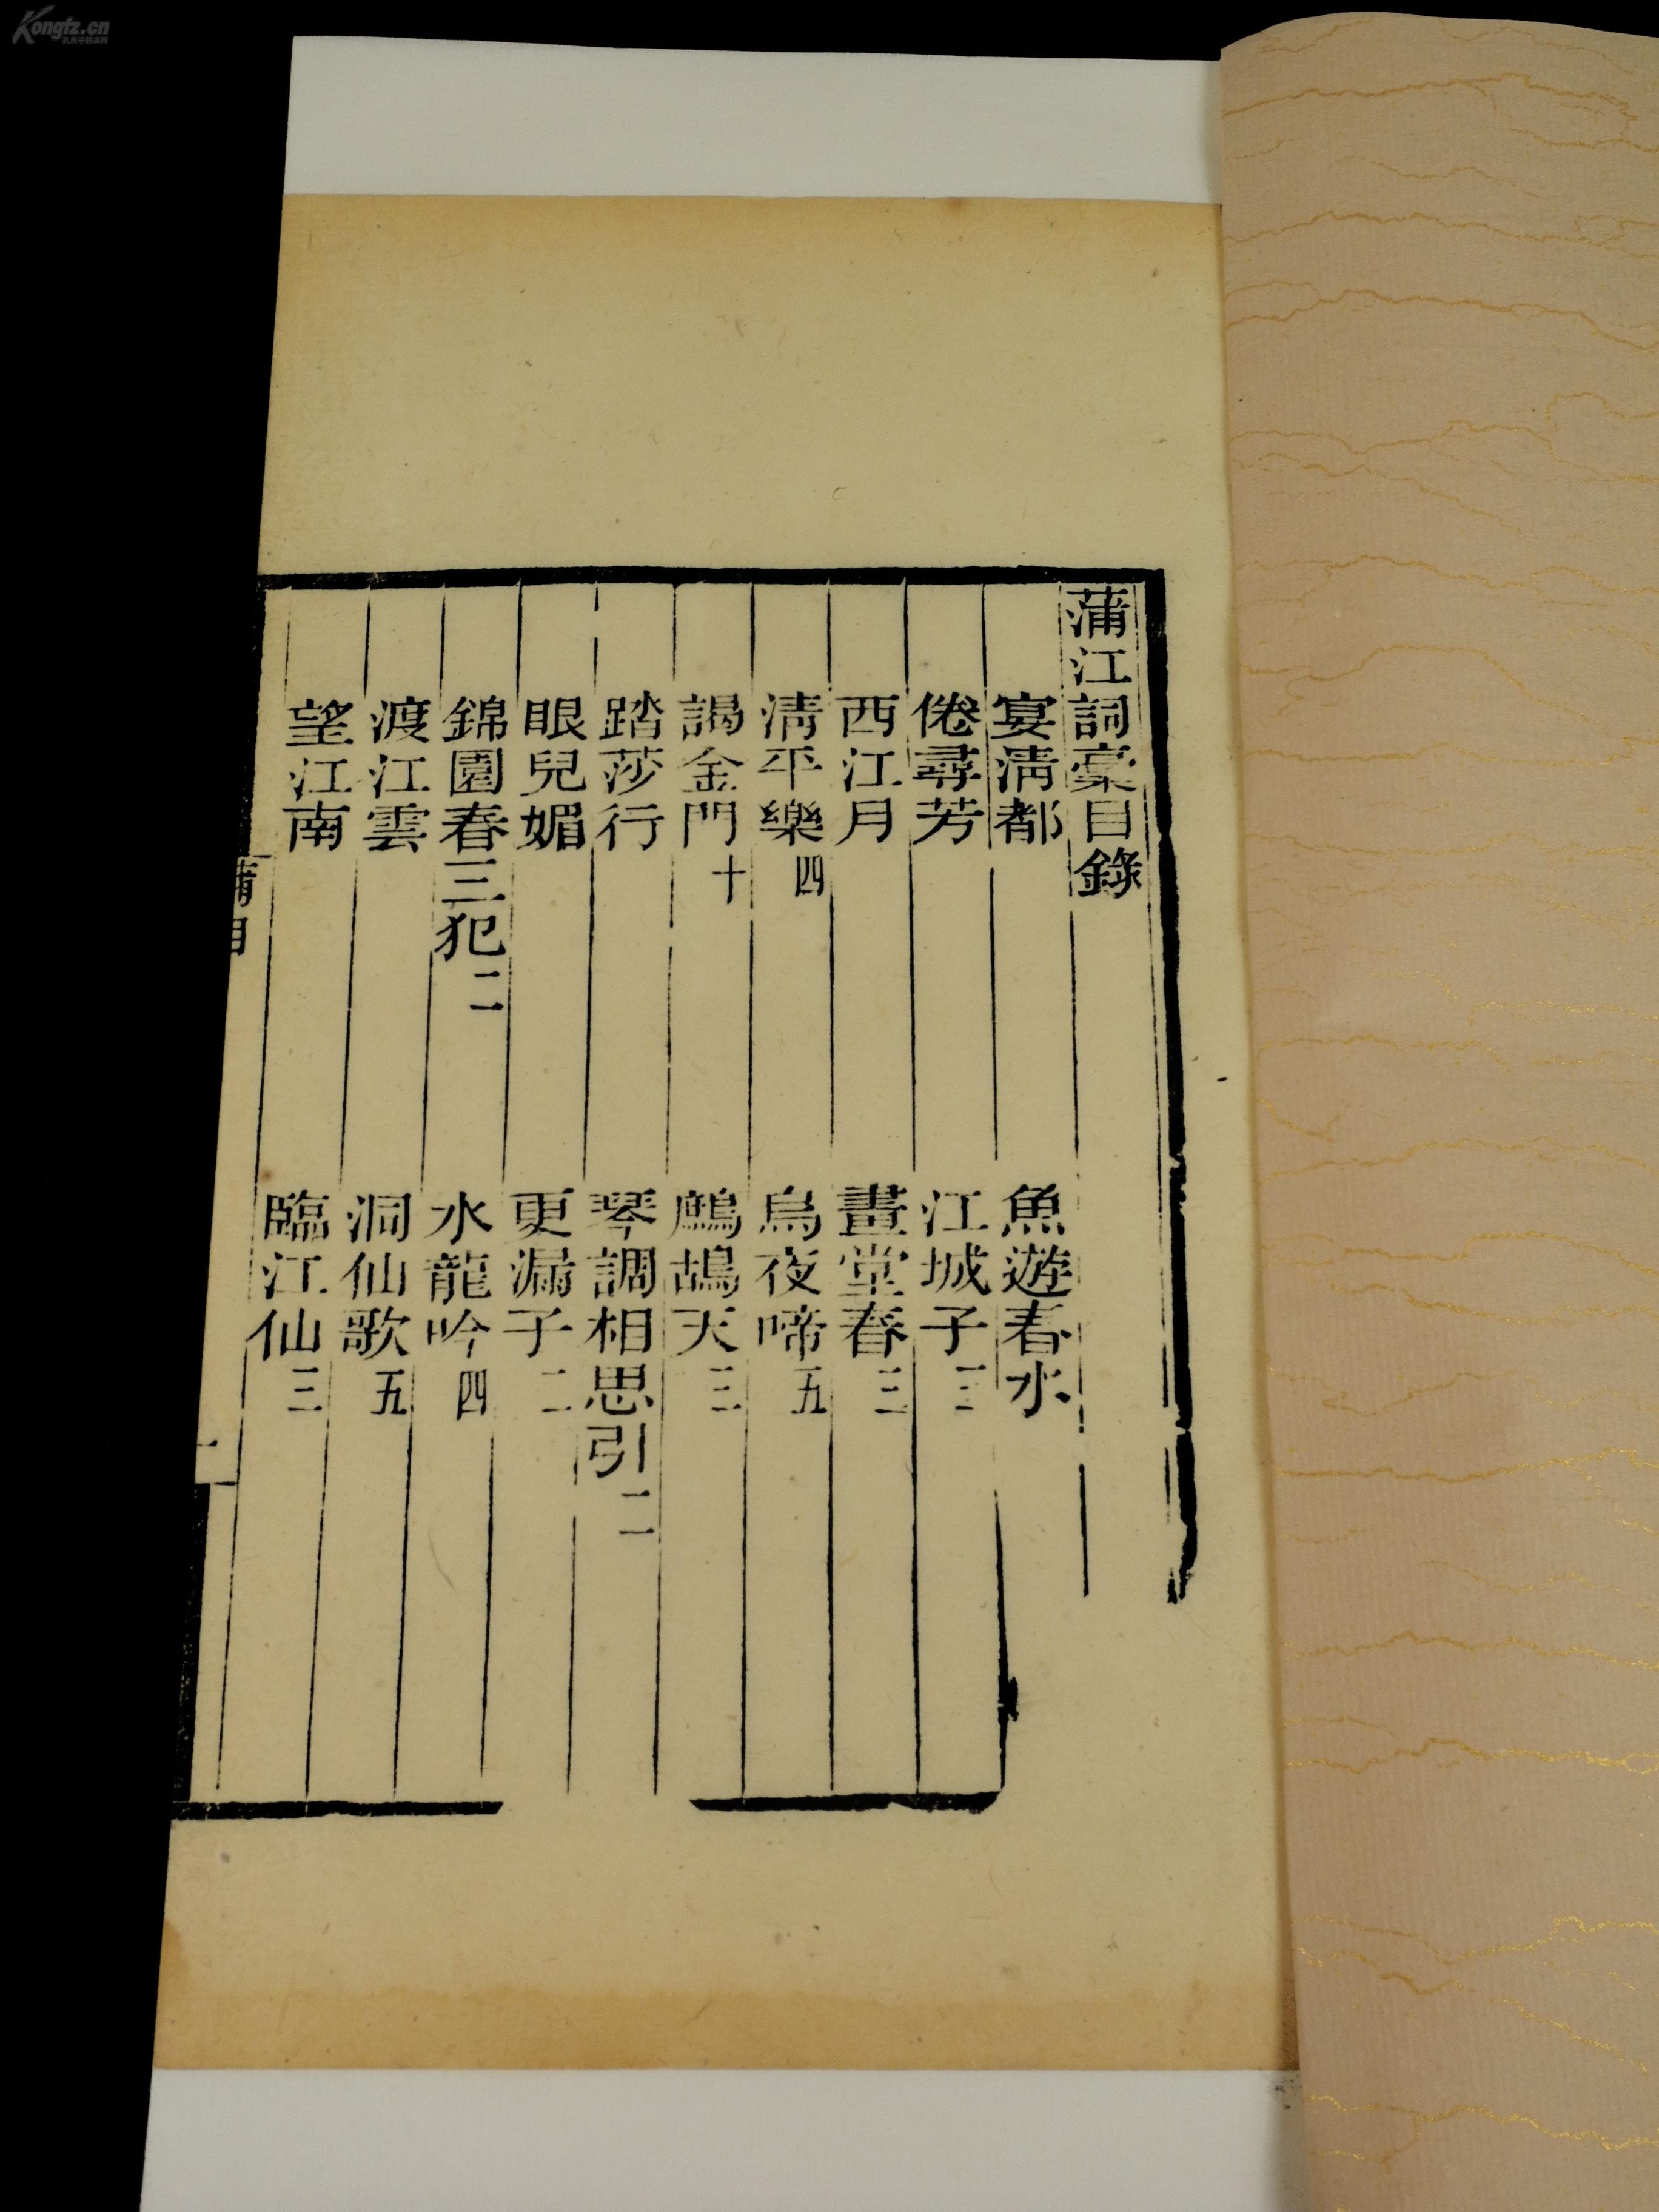 蒲江詞稾目錄
宴淸都　魚遊春水
倦尋芳　江城子三
西江月　畫堂春三
淸平樂四　烏夜啼五
謁金門十　鷓鴣天三
踏莎行　琴調相思引二
眼兒媚　更漏子二
錦園春三犯二　水龍吟四
渡江雲　洞仙歌五
望江南　臨江仙三
蒲目　一
Kongfz.cn